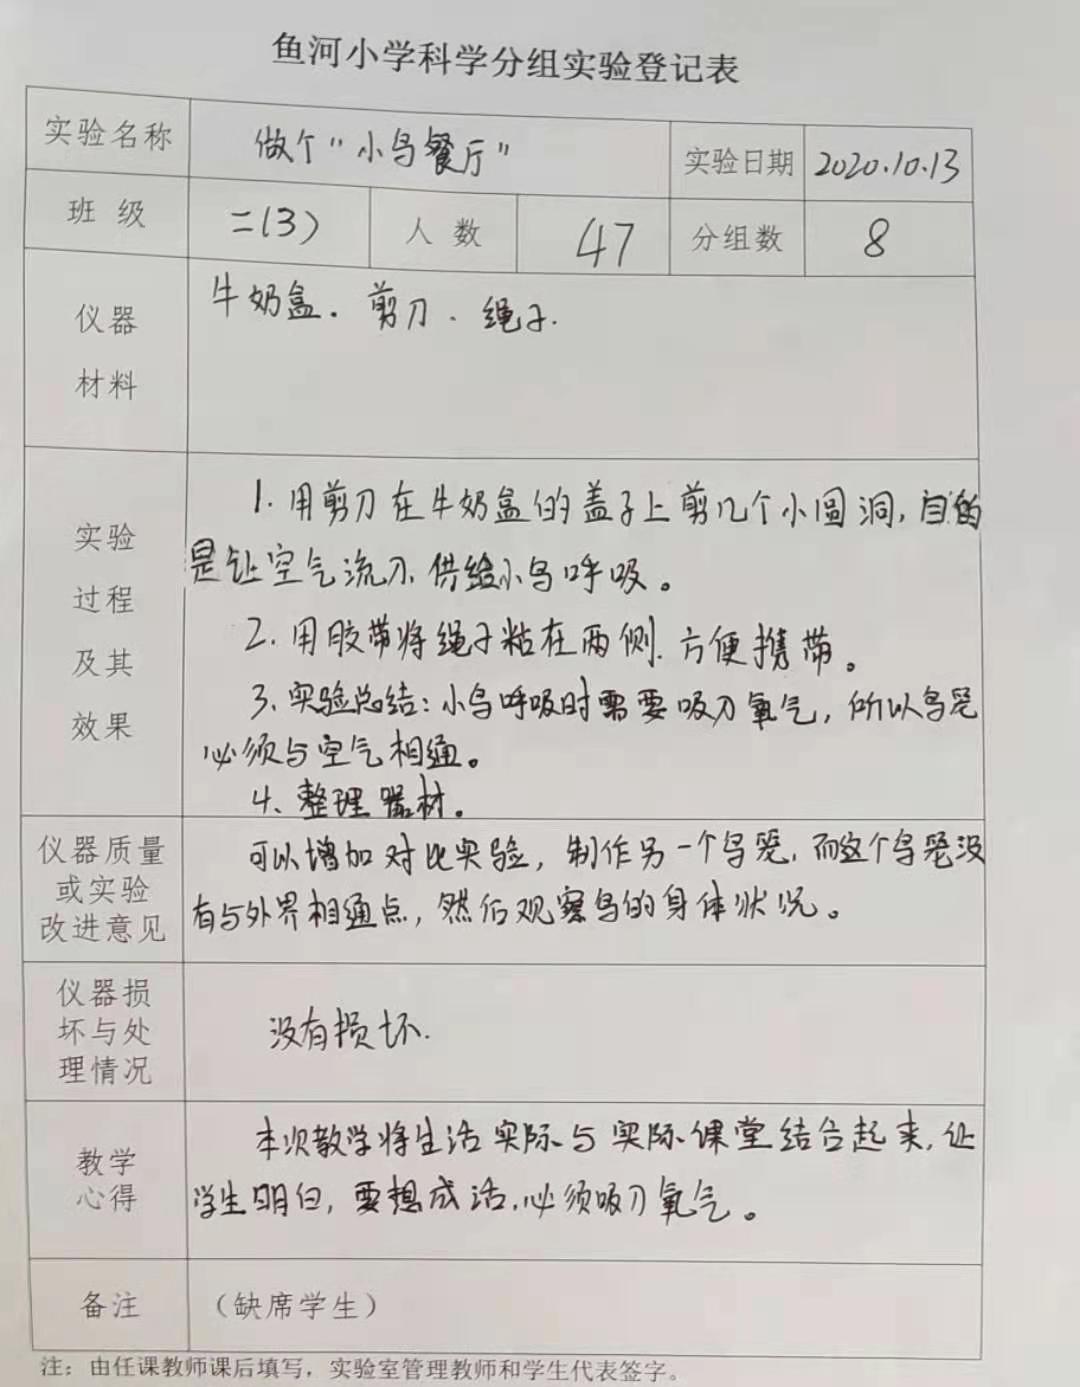 鱼河小学科学分组实验登记表
实验名称 做个"小鸟餐厅" 实验日期 2020.10.13
班 级 二(3) 人 数 47 分组数 8
仪器
材料
牛奶盒. 剪刀. 绳子.
实验
过程
及其
效果
1. 用剪刀在牛奶盒的盖子上剪几个小圆洞,目的
是让空气流 供给小鸟呼吸。
2. 用胶带将绳子粘在两侧.方便携带。
3、实验总结:小鸟呼吸时需要吸入氧气,所以鸟笼
必须与空气相通。
4、整理器材。
仪器质量
或实验
改进意见
可以增加对比实验,制作另一个鸟笼,而这个鸟笼没
有与外界相通点,然后观察鸟的身体状况。
仪器损
坏与处
理情况
没有损坏.
教学
心得
本次教学将生活实际与实际课堂结合起来,让
学生明白,要想成活,必须吸入氧气。
备注 (缺席学生)
注:由任课教师课后填写,实验室管理教师和学生代表签字。